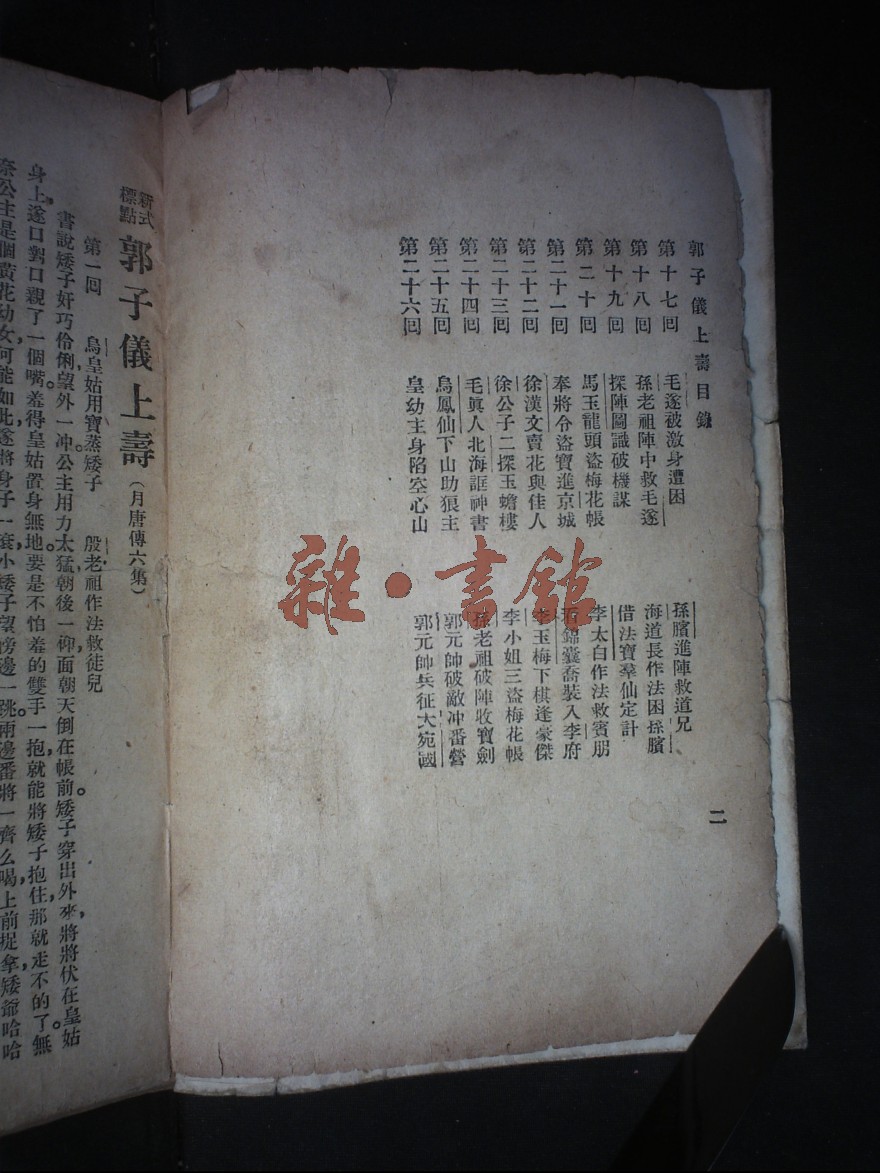 郭子儀上壽目錄
第十七回 毛遂被激身遭困 孫臏進陣救道兄
第十八回 孫老祖陣中救毛遂 海道長作法困孫臏
第十九回 探陣圖識破機謀 借法寶羣仙定計
第二十回 馬玉龍頭盜梅花帳 李太白作法救賓朋
第二十一回 奉將令盜寶進京城 看錦囊喬裝入李府
第二十二回 徐漢文賣花與佳人 李玉梅下棋逢豪傑
第二十三回 徐公子二探玉蟾樓 李小姐三盜梅花帳
第二十四回 毛眞人北海誆神書 孫老祖破陣收寶劍
第二十五回 烏鳳仙下山助狼主 郭元帥破敵冲番營
第二十六回 皇幼主身陷空心山 郭元帥兵征大宛國
二
新式標點 郭子儀上壽(月唐傳六集)
第一回 烏皇姑用寶蒸矮子 殷老祖作法救徒兒
書說矮子奸巧伶俐,望外一冲。公主用力太猛,朝後一仰,面朝天倒在帳前。矮子穿出外來,將將伏在皇姑
身上。遂口對口親了一個嘴。羞得皇姑置身無地。要是不怕羞的雙手一抱,就能將矮子抱住,那就走不的了。無
奈公主是個黃花幼女,何能如此,遂將身子一滾,小矮子望傍邊一跳。兩邊番將一齊么喝,上前捉拿,矮爺哈哈
雜·書館